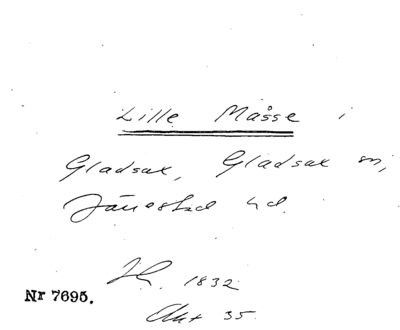 Lille Måsse i
Gladsax, Gladsax sn,
Järrestad hd.
1832
Nr 7695.
Akt 35.